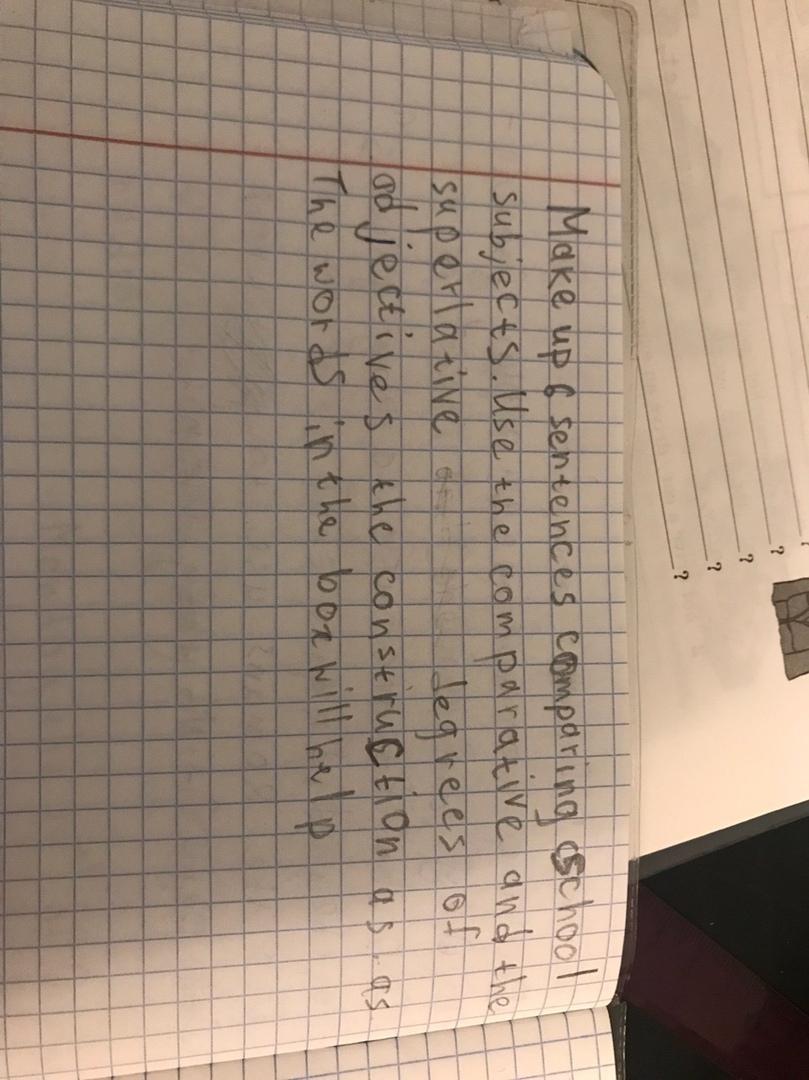 Make up 6 sentences comparing school
subjects. Use the comparative and the
superlative degrees of
adjectives the construction as as
The words in the box will help
?
?
?
?
?